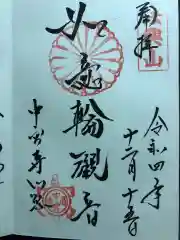 奉拝
令和四年
十二月十五日
如意輪観音
中宮寺